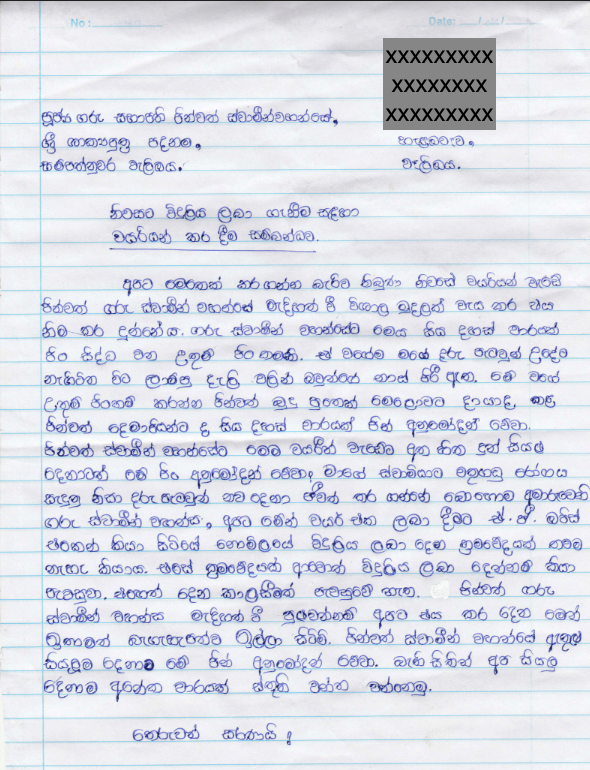 No : Date: / /
XXXXXXXXX
XXXXXXXX
XXXXXXXXX
පූජ්‍ය ගරු සභාපති පින්වත් ස්වාමීන්වහන්සේ,
ශ්‍රී ශාක්‍යපුත්‍ර පදනම,
සමපත්නුවර වැලිඔය. වැලිඔය.
නිවසට විදුලිය ලබා ගැනීම සඳහා
වයරින් කර දීම සම්බන්ධව.
අපට මෙතෙක් කරගන්න බැරිව තිබුණ නිවසේ වයරින් වැඩේ
පින්වත් ගරු ස්වාමීන් වහන්සේ මැදිහත් වී විශාල මුදලක් වැය කර එය
නිම කර දුන්නේය. ගරු ස්වාමීන් වහන්සේට මෙය සිය දහස් වාරයක්
පිං සිද්ධ වන උතුම් පිංකමකි. ඒ වගේම මගේ දරු පැටවුන් උදේට
නැගිටින විට ලාම්පු දැලි වලින් ඔවුන්ගේ නාස් පිරී ඇත. මේ වගේ
උතුම් පිංකම් කරන්න පින්වත් බුදු පුතෙක් මෙලොවට දායාද කළ
පින්වත් දෙමාපියන්ට ද සිය දහස් වාරයක් පින් අනුමෝදන් වේවා.
පින්වත් ස්වාමීන් වහන්සේට මෙම වයරින් වැඩේට අත හිත දුන් සියලු
දෙනාටත් මේ පිං අනුමෝදන් වේවා. මාගේ ස්වාමියාට වකුගඩු රෝගය
සෑදුන නිසා දරු පැටවුන් නව දෙනා ජීවත් කර ගන්නේ බොහොම අමාරුවෙනි
ගරු ස්වාමීන් වහන්ස, අපට මේන් වයර් එක ලබා දීමට ඒ. ජී. ඔෆිස්
එකෙන් කියා සිටියේ නොමිලයේ විදුලිය ලබා දෙන ක්‍රමවේදයක් තවම
නැහැ කියාය. එසේ ක්‍රමවේදයක් ආවොත් විදුලිය ලබා දෙන්නම් කියා
පැවසුවා. එහෙත් දෙන කාලසීමාව පැවසුවේ නැත. පින්වත් ගරු
ස්වාමීන් වහන්ස මැදිහත් වී පුළුවන්නම් අපට එය කර දෙන මෙන්
ඉතාමත් බැගෑපත්ව ඉල්ලා සිටිමි. පින්වත් ස්වාමීන් වහන්සේ ඇතුළු
සියලුම දෙනාට මේ පින් අනුමෝදන් වේවා. බැතිසිතින් අප සියලු
දෙනාම අනේක වාරයක් ස්තූති වන්ත වන්නෙමු.
තෙරුවන් සරණයි !